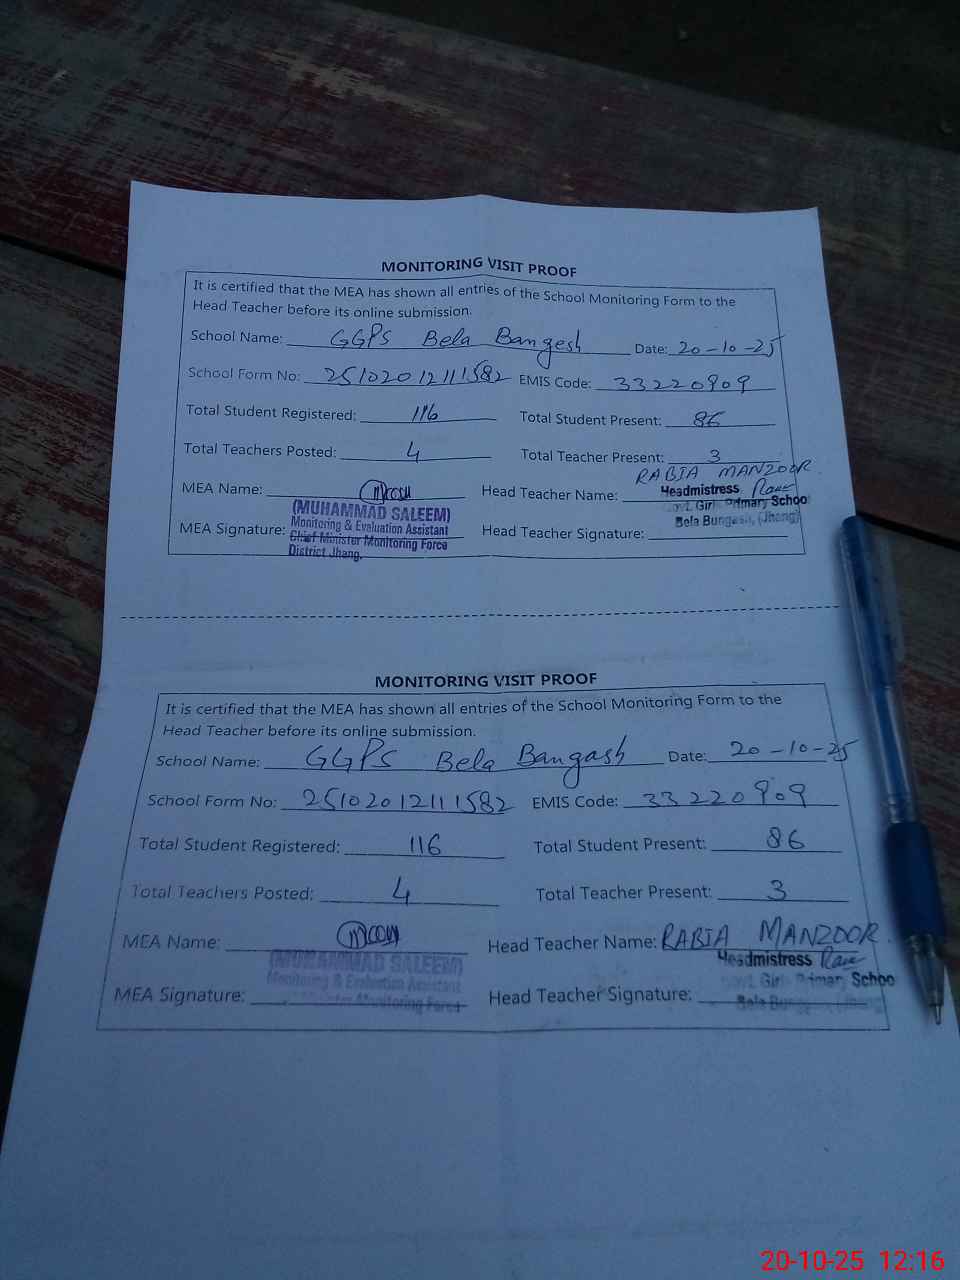 MONITORING VISIT PROOF
It is certified that the MEA has shown all entries of the School Monitoring Form to the
Head Teacher before its online submission.
School Name: GGPS Bela Bangesh Date: 20-10-25
School Form No: 25102012111582 EMIS Code: 33220909
Total Student Registered: 116 Total Student Present: 86
Total Teachers Posted: 4 Total Teacher Present: 3
RABIA MANZOOR
MEA Name: Head Teacher Name:
Headmistress
(MUHAMMAD SALEEM) Govt. Girls Primary School
Monitoring & Evaluation Assistant Bela Bungesh, (Jhang)
MEA Signature: Chief Minister Monitoring Force Head Teacher Signature:
District Jhang.
MONITORING VISIT PROOF
It is certified that the MEA has shown all entries of the School Monitoring Form to the
Head Teacher before its online submission.
School Name: GGPS Bela Bangash Date: 20-10-25
School Form No: 25102012111582 EMIS Code: 33220909
Total Student Registered: 116 Total Student Present: 86
Total Teachers Posted: 4 Total Teacher Present: 3
MEA Name: Head Teacher Name: RABIA MANZOOR
Headmistress
(MUHAMMAD SALEEM) Govt. Girls Primary School
Monitoring & Evaluation Assistant
MEA Signature: Minister Monitoring Force Head Teacher Signature: Bela
20-10-25 12:16